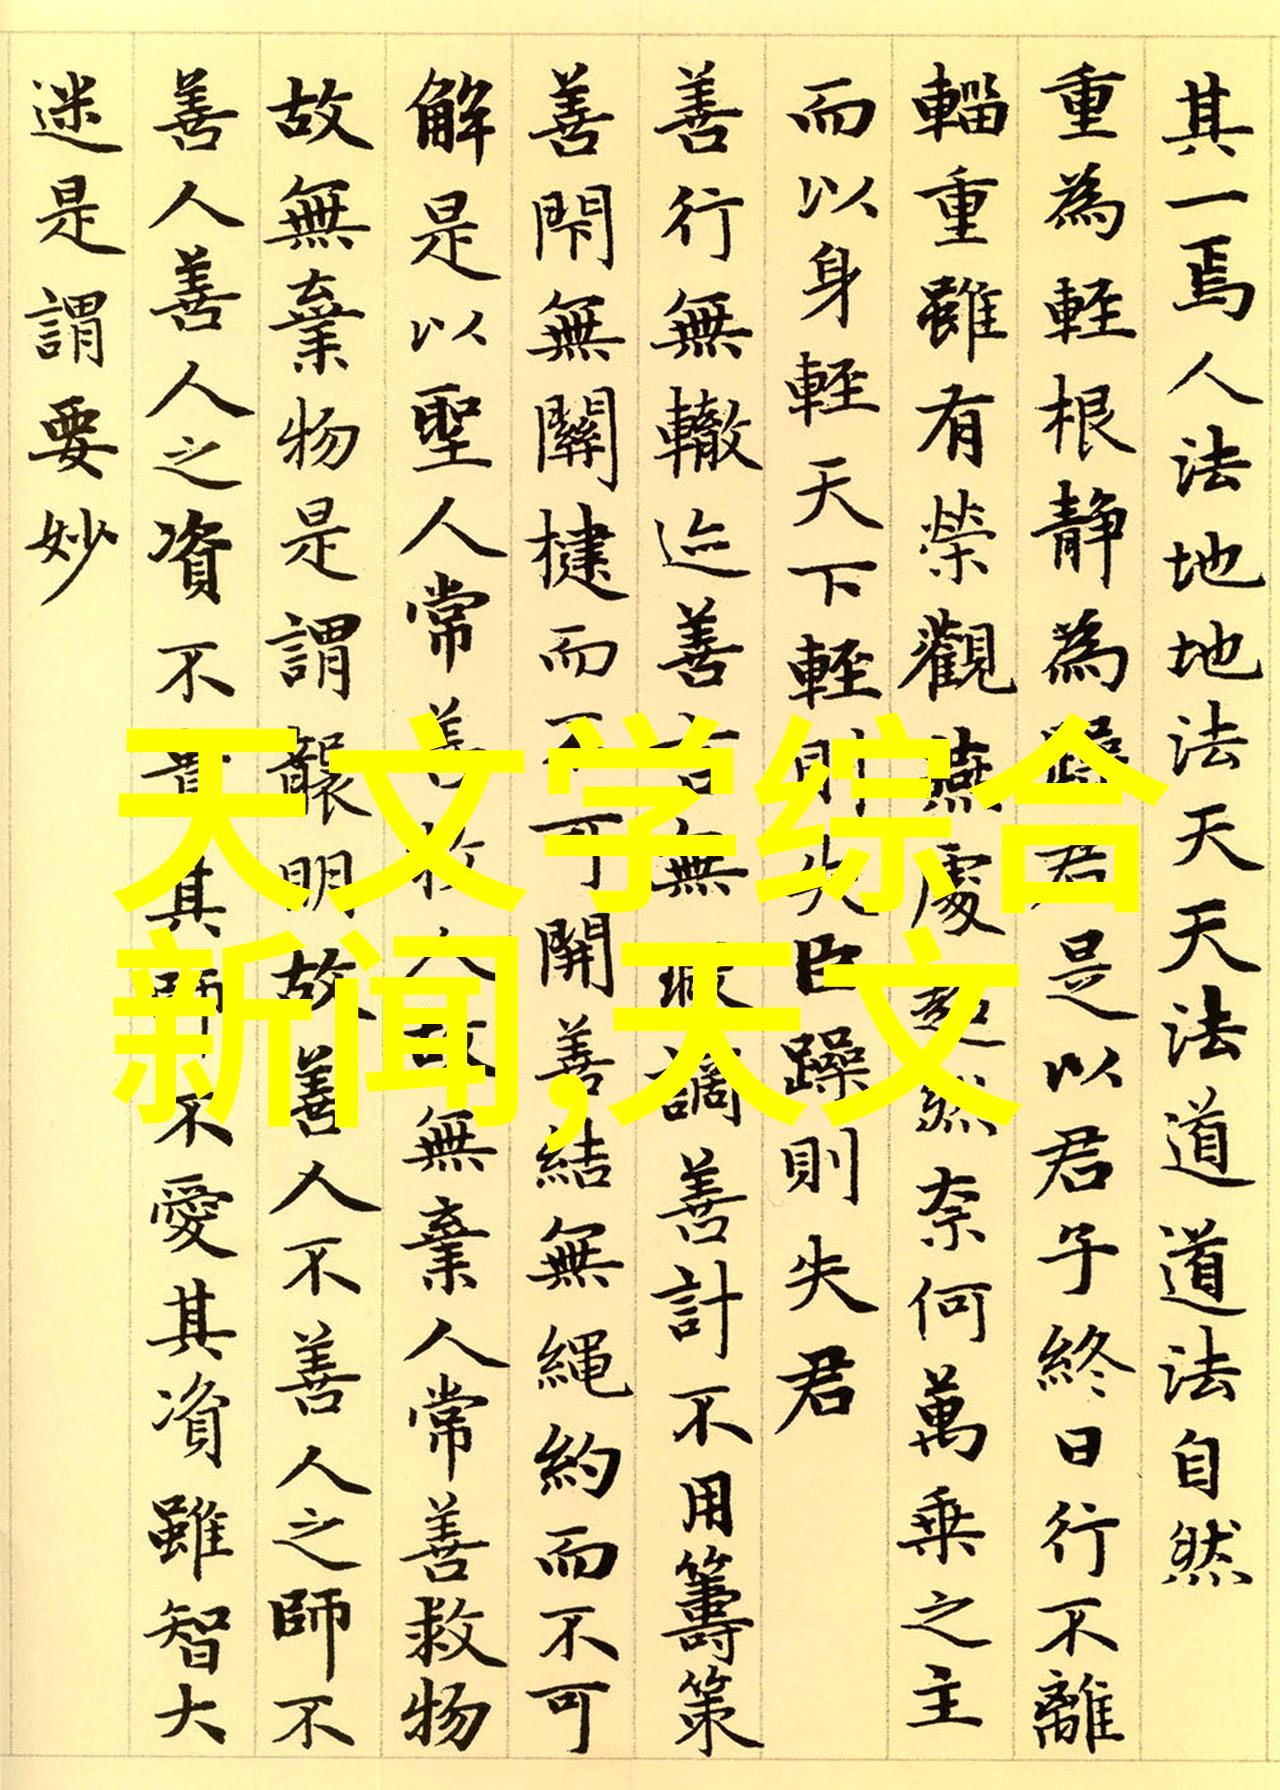 其一焉人法地地法天天法道道法自然
重為輕根靜為躁君是以君子終日行不離
輜重雖有榮觀燕處超然奈何萬乘之主
而以身輕天下輕則失臣躁則失君
善行無轍迹善言無瑕謫善計不用籌策
善閇無關楗而不可開善結無繩約而不可
解是以聖人常善救人故無棄人常善救物
故無棄物是謂襲明故善人不善人之師不
善人善人之資不貴其師不愛其資雖智大
迷是謂要妙
天文学综合
新闻,天文